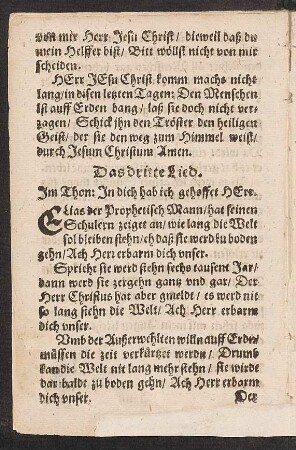 von mir Herr Jesu Christ / dieweil daß du
mein Helffer bist / Bitt wöllst nicht von mir
scheiden.
HErr JEsu Christ komm machs nicht
lang / in disen letzten Tagen: Den Menschen
ist auff Erden bang / laß sie doch nicht ver-
zagen / Schick jhn den Tröster den heiligen
Geist / der sie den weg zum Himmel weist /
durch Jesum Christum Amen.
Das dritte Lied.
Im Thon: In dich hab ich gehoffet HErr.
ELias der Prophetisch Mann / hat seinen
Schulern zeiget an / wie lang die Welt
sol bleiben stehn / eh daß sie werd zu boden
gehn / Ach Herr erbarm dich vnser.
Spricht sie werd stehn sechs tausent Jar /
dann werd sie zergehn gantz vnd gar / Der
Herr Christus hat aber gmeldt / es werd nit
so lang stehn die Welt / Ach Herr erbarm
dich vnser.
Vmb der Außerwehlten willn auff Erden
müssen die zeit verkürtzet werdn / Drumb
kan die Welt nit lang mehr stehn / sie wirde
dar baldt zu boden gehn / Ach Herr erbarm
dich vnser. Der